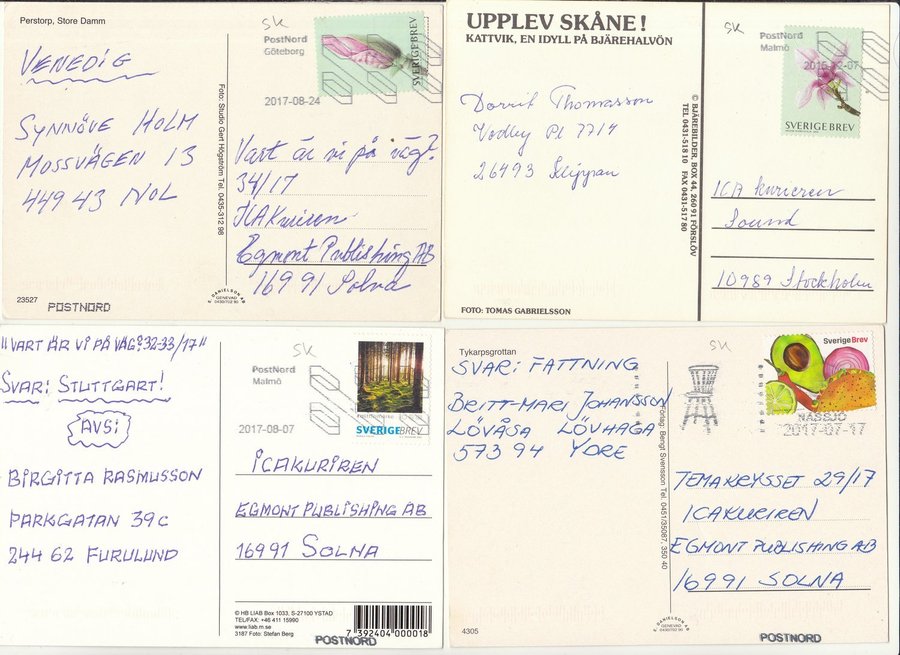 Perstorp, Store Damm
SK
PostNord
Göteborg
2017-08-24
SVERIGE BREV
VENEDIG
SYNNÖVE HOLM
MOSSVÄGEN 13
449 43 NOL
Foto: Studio Gert Högström Tel. 0435-312 98
Vart är vi på väg?
34/17
ICAKuriren
Egmont Publishing AB
169 91 Solna
23527
POSTNORD
DANIELSON AB
GENEVAD
0430/702 90
UPPLEV SKÅNE!
KATTVIK, EN IDYLL PÅ BJÄREHALVÖN
SK
PostNord
Malmö
SVERIGE BREV
Dorrit Thomasson
Vedby Pl 7714
26493 Klippan
© BJÄREBILDER, BOX 44, 260 91 FÖRSLÖV
TEL 0431-518 10 FAX 0431-517 80
ICA kuriren
Sound
10989 Stockholm
FOTO: TOMAS GABRIELSSON
"VART ÄR VI PÅ VÄG? 32-33/17"
SVAR: STUTTGART!
AVS:
BIRGITTA RASMUSSON
PARKGATAN 39C
244 62 FURULUND
SK
PostNord
Malmö
2017-08-07
SVERIGE BREV
ICAKURIREN
EGMONT PUBLISHING AB
16991 SOLNA
© HB LIAB Box 1033, S-27100 YSTAD
TEL/FAX: +46 411 15990
www.liab.m.se
3187 Foto: Stefan Berg
7 392404 000018
POSTNORD
Tykarpsgrottan
SK
Sverige Brev
NÄSSJÖ
2017-07-17
SVAR: FATTNING
BRITT-MARI JOHANSSON
LÖVÅSA LÖVHAGA
573 94 YDRE
Förlag: Bengt Svensson Tel. 0451/35087, 350 40
TEMAKRYSSET 29/17
ICAKURIREN
EGMONT PUBLISHING AB
16991 SOLNA
4305
DANIELSON AB
GENEVAD
0430/702 90
POSTNORD